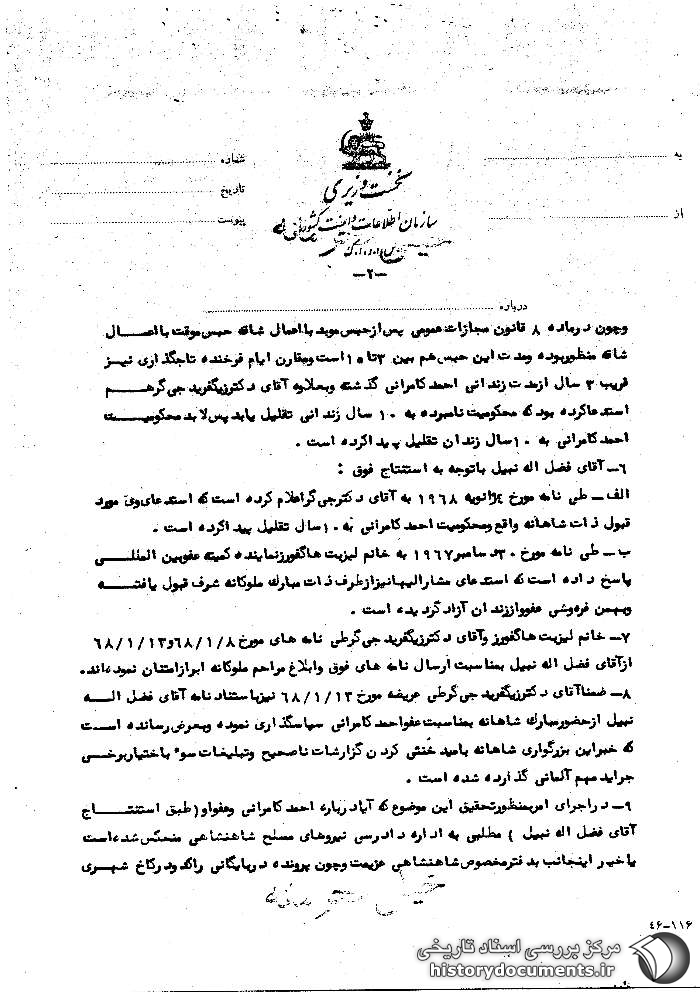 به
شماره
تاریخ
از
پیوست
نخست وزیری
سازمان اطلاعات و امنیت کشور
-۲-
درباره
وچون درماده ۸ قانون مجازات عمومی پس ازحبس موبد بااعمال شاقه حبس موقت بااعمال
شاقه منظوربوده ومدت این حبس هم بین ۳تا ۱۰است ومقارن ایام فرخنده تاجگذاری نیز
قریب ۳ سال ازمدت زندانی احمدکامرانی گذشته وبعلاوه آقای دکترزیگفرید جی گرهم
استدعاکرده بود که محکومیت نامبرده به ۱۰ سال زندانی تقلیل یابد پس لابد محکومیت
احمدکامرانی به ۱۰سال زندان تقلیل پیداکرده است .
۶- آقای فضل اله نبیل باتوجه به استنتاج فوق :
الف - طی نامه مورخ ژانویه ۱۹۶۸ به آقای دکترجی گراعلام کرده است که استدعای وی مورد
قبول ذات شاهانه واقع ومحکومیت احمدکامرانی به ۱۰سال تقلیل پیداکرده است .
ب - طی نامه مورخ ۳۰دسامبر۱۹۶۷ به خانم لیزیت هاگفورزنماینده کمیته عفوبین المللی
پاسخ داده است که استدعای مشارالیهانیزازطرف ذات مبارک ملوکانه شرف قبول یافته
وبهمن فروشی عفوواززندان آزادگردیده است .
۷- خانم لیزیت هاگفورز وآقای دکترزیگفرید جی گرطی نامه های مورخ ۶۸/۱/۸و۶۸/۱/۱۳
ازآقای فضل اله نبیل بمناسبت ارسال نامه های فوق وابلاغ مراحم ملوکانه ابرازامتنان نموده‌اند.
۸- ضمناآقای دکترزیگفرید جی گرطی عریضه مورخ ۶۸/۱/۱۳ نیزباستنادنامه آقای فضل اله
نبیل ازحضورمبارک شاهانه بمناسبت عفواحمدکامرانی سپاسگذاری نموده وبعرض رسانده است
که خبراین بزرگواری شاهانه بامید خنثی کردن گزارشات ناصحیح وتبلیغات سوء باختیاربرخی
جراید مهم آلمانی گذارده شده است .
۹- دراجرای امربمنظورتحقیق این موضوع که آیادرباره احمدکامرانی وعفواو(طبق استنتاج
آقای فضل اله نبیل ) مطلبی به اداره دادرسی نیروهای مسلح شاهنشاهی منعکس شده‌است
یاخیر اینجانب بدفترمخصوص شاهنشاهی عزیمت وچون پرونده دربایگانی راکدودرکاخ شهری
خیلی محرمانه
۴۶-۱۱۶
مرکز بررسی اسناد تاریخی
historydocuments.ir